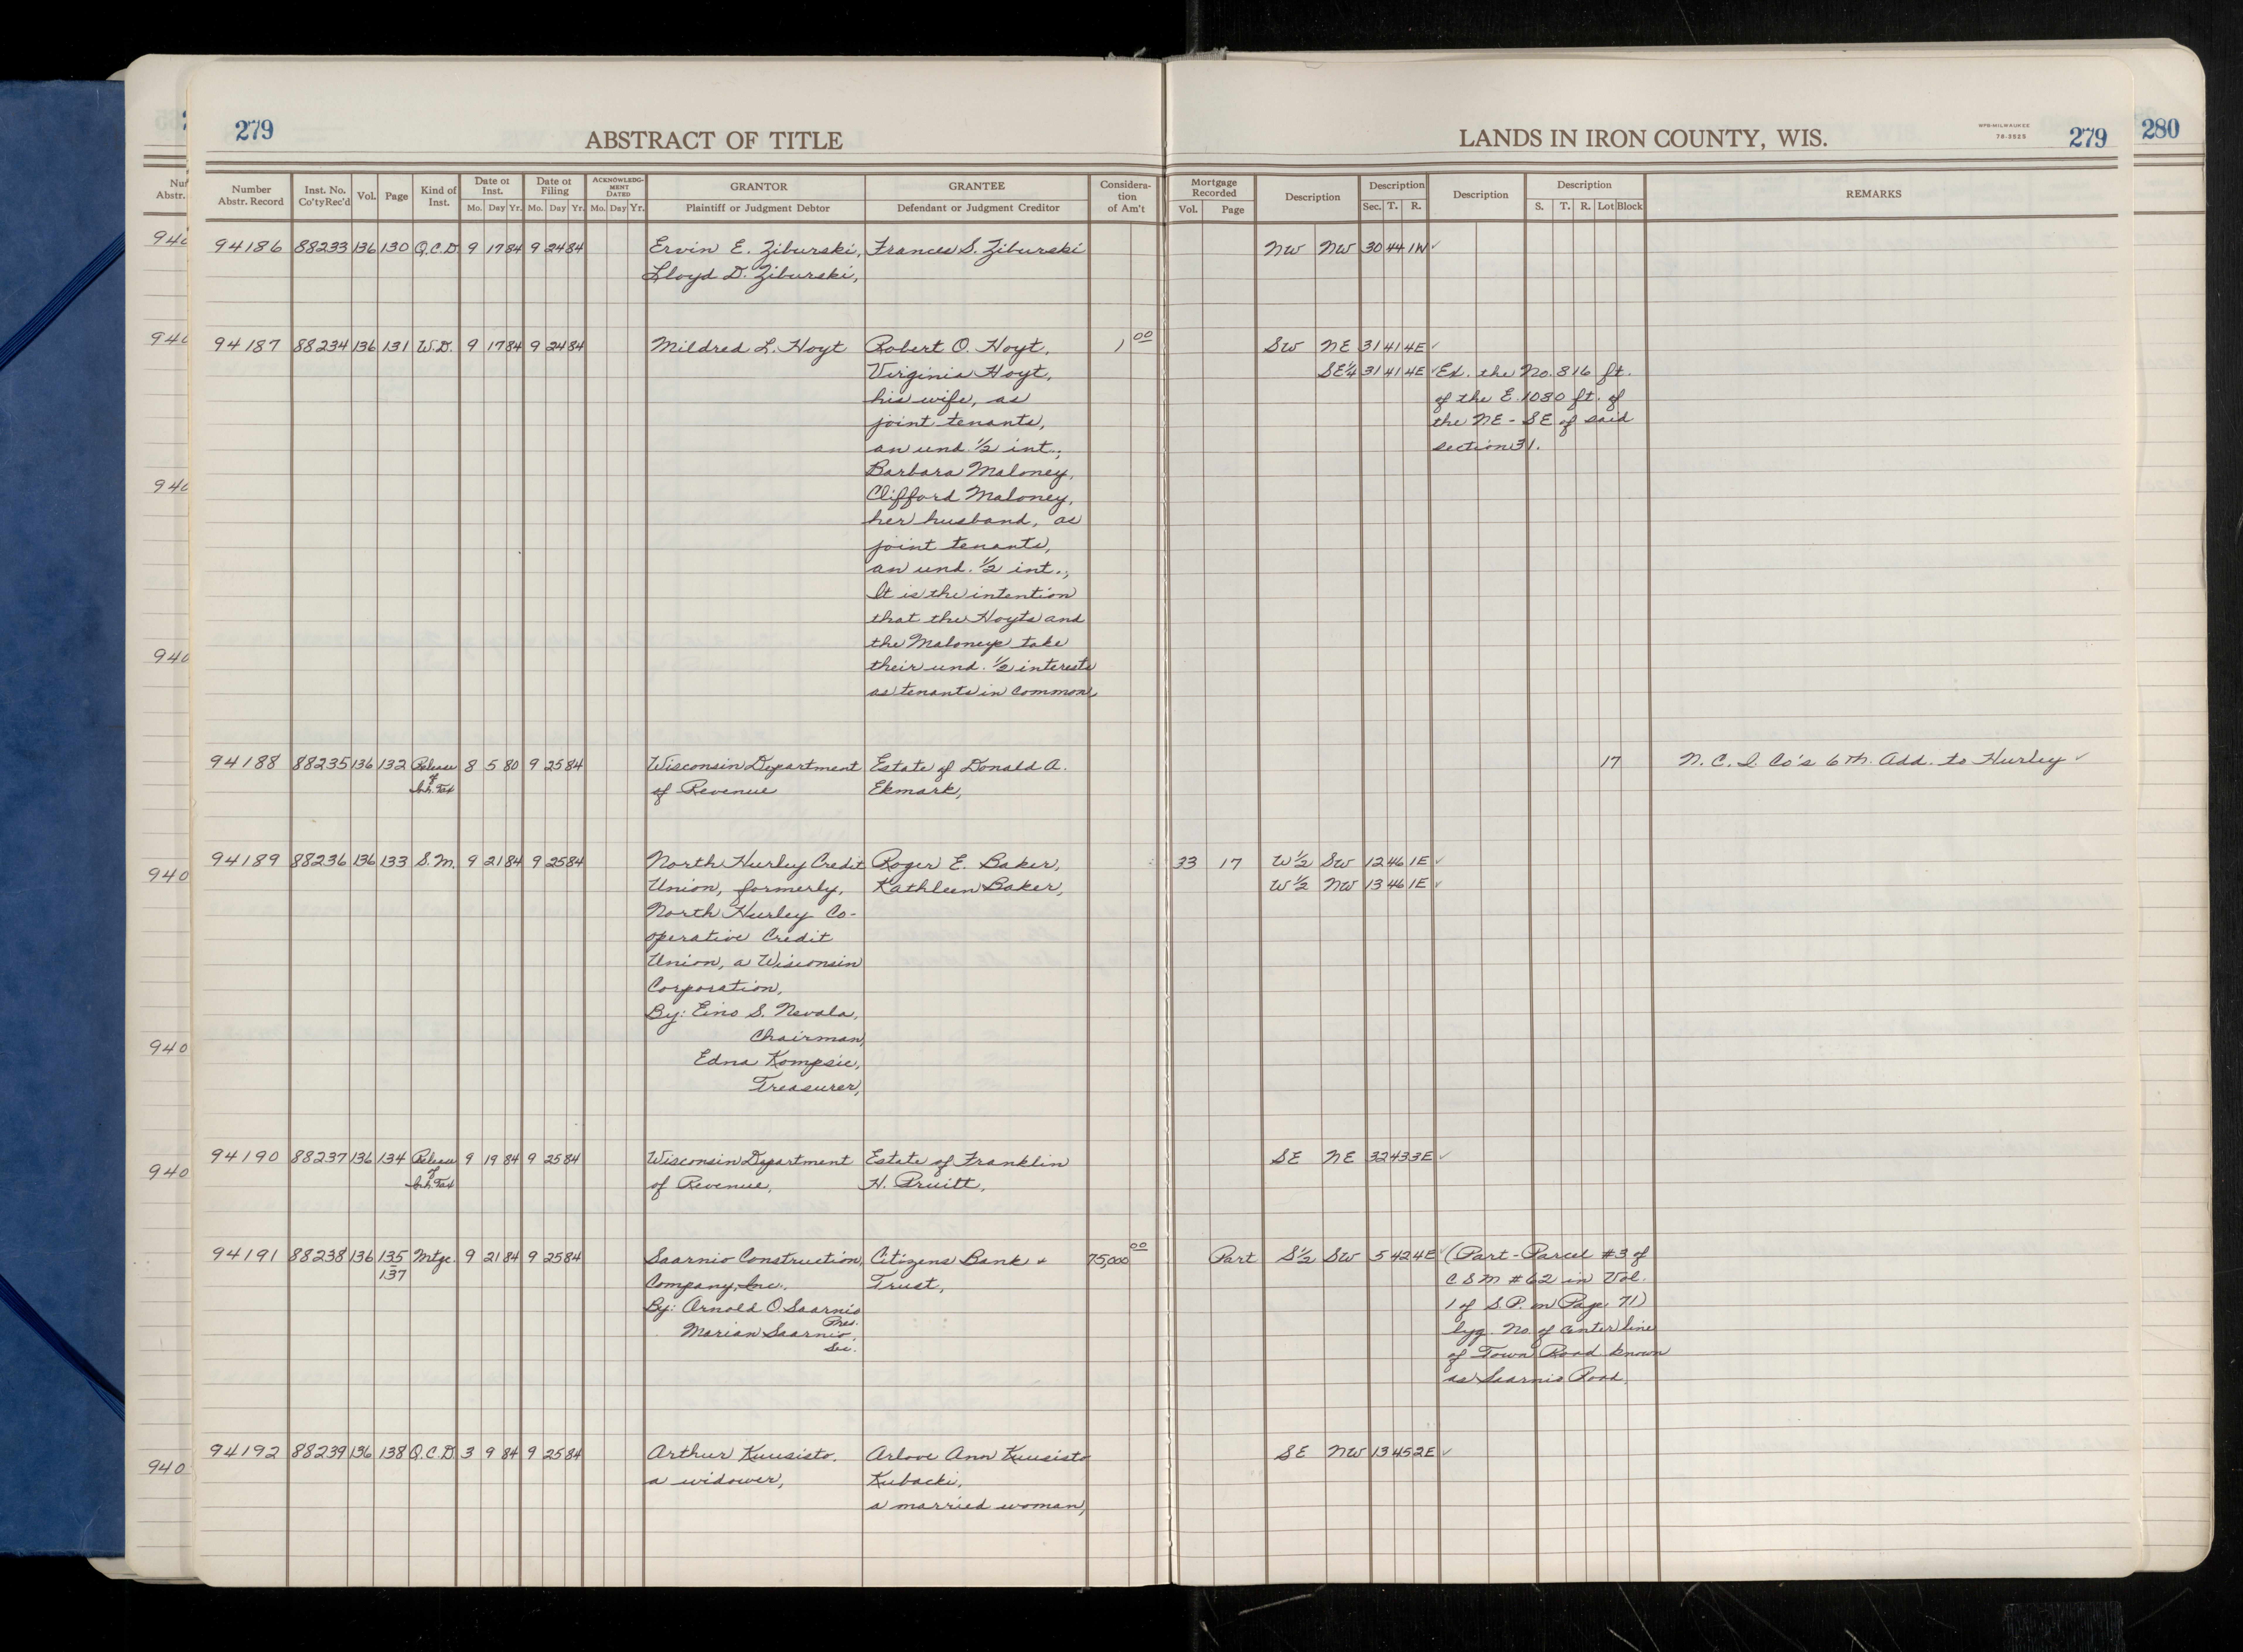 279 ABSTRACT OF TITLE LANDS IN IRON COUNTY, WIS. WPB-MILWAUKEE 78-3525 279 280
Number Abstr. Record Inst. No. Co'ty Rec'd Vol. Page Kind of Inst. Date of Inst. Mo. Day Yr. Date of Filing Mo. Day Yr. ACKNOWLEDGMENT DATED Mo. Day Yr. GRANTOR Plaintiff or Judgment Debtor GRANTEE Defendant or Judgment Creditor Consideration of Am't Mortgage Recorded Vol. Page Description Description Sec. T. R. Description Description S. T. R. Lot Block REMARKS
94186 88233 136 130 Q.C.D. 9 17 84 9 24 84 Ervin E. Ziburski, Frances S. Ziburski NW NW 30 44 1W ✓
Lloyd D. Ziburski,
94187 88234 136 131 W.D. 9 17 84 9 24 84 Mildred L. Hoyt Robert O. Hoyt, 1 00 SW NE 31 41 4E ✓
Virginia Hoyt, SE¼ 31 41 4E ✓ Ex. the No. 816 ft.
his wife, as of the E. 1080 ft. of
joint tenants, the NE - SE of said
an und. ½ int.; section 31.
Barbara Maloney,
Clifford Maloney,
her husband, as
joint tenants,
an und. ½ int.;
It is the intention
that the Hoyts and
the Maloneys take
their und. ½ interests
as tenants in common,
94188 88235 136 132 Release of Inh. Tax 8 5 80 9 25 84 Wisconsin Department Estate of Donald A. 17 N. C. I. Co's 6th. Add. to Hurley ✓
of Revenue Ekmark,
94189 88236 136 133 S.M. 9 21 84 9 25 84 North Hurley Credit Roger E. Baker, 33 17 W½ SW 12 46 1E ✓
Union, formerly, Kathleen Baker, W½ NW 13 46 1E ✓
North Hurley Co-
operative Credit
Union, a Wisconsin
Corporation,
By: Eino S. Nevala,
Chairman,
Edna Kompsie,
Treasurer,
94190 88237 136 134 Release of Inh. Tax 9 19 84 9 25 84 Wisconsin Department Estate of Franklin SE NE 32 43 3E ✓
of Revenue, H. Pruitt,
94191 88238 136 135-137 Mtge. 9 21 84 9 25 84 Saarnio Construction Citizens Bank + 75,000 00 Part S½ SW 5 42 4E ✓ (Part-Parcel #3 of
Company, Inc. Trust, C S M #62 in Vol.
By: Arnold O. Saarnio, Pres. 1 of S.P. on Page 71)
Marian Saarnio, Sec. lyg. No. of centerline
of Town Road known
as Saarnio Road.
94192 88239 136 138 Q.C.D. 3 9 84 9 25 84 Arthur Kuusisto, Arlove Ann Kuusisto SE NW 13 45 2E ✓
a widower, Kubacki,
a married woman,